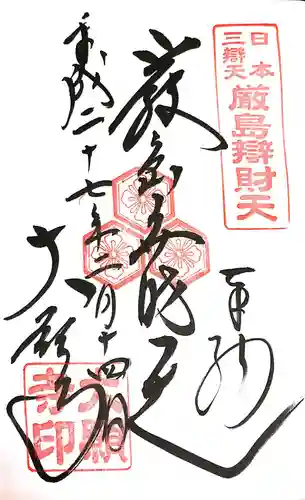 日本
三辯天
厳島辯財天
奉納
厳島弁財天
平成二十七年二月十四日
大願寺
大願
寺印